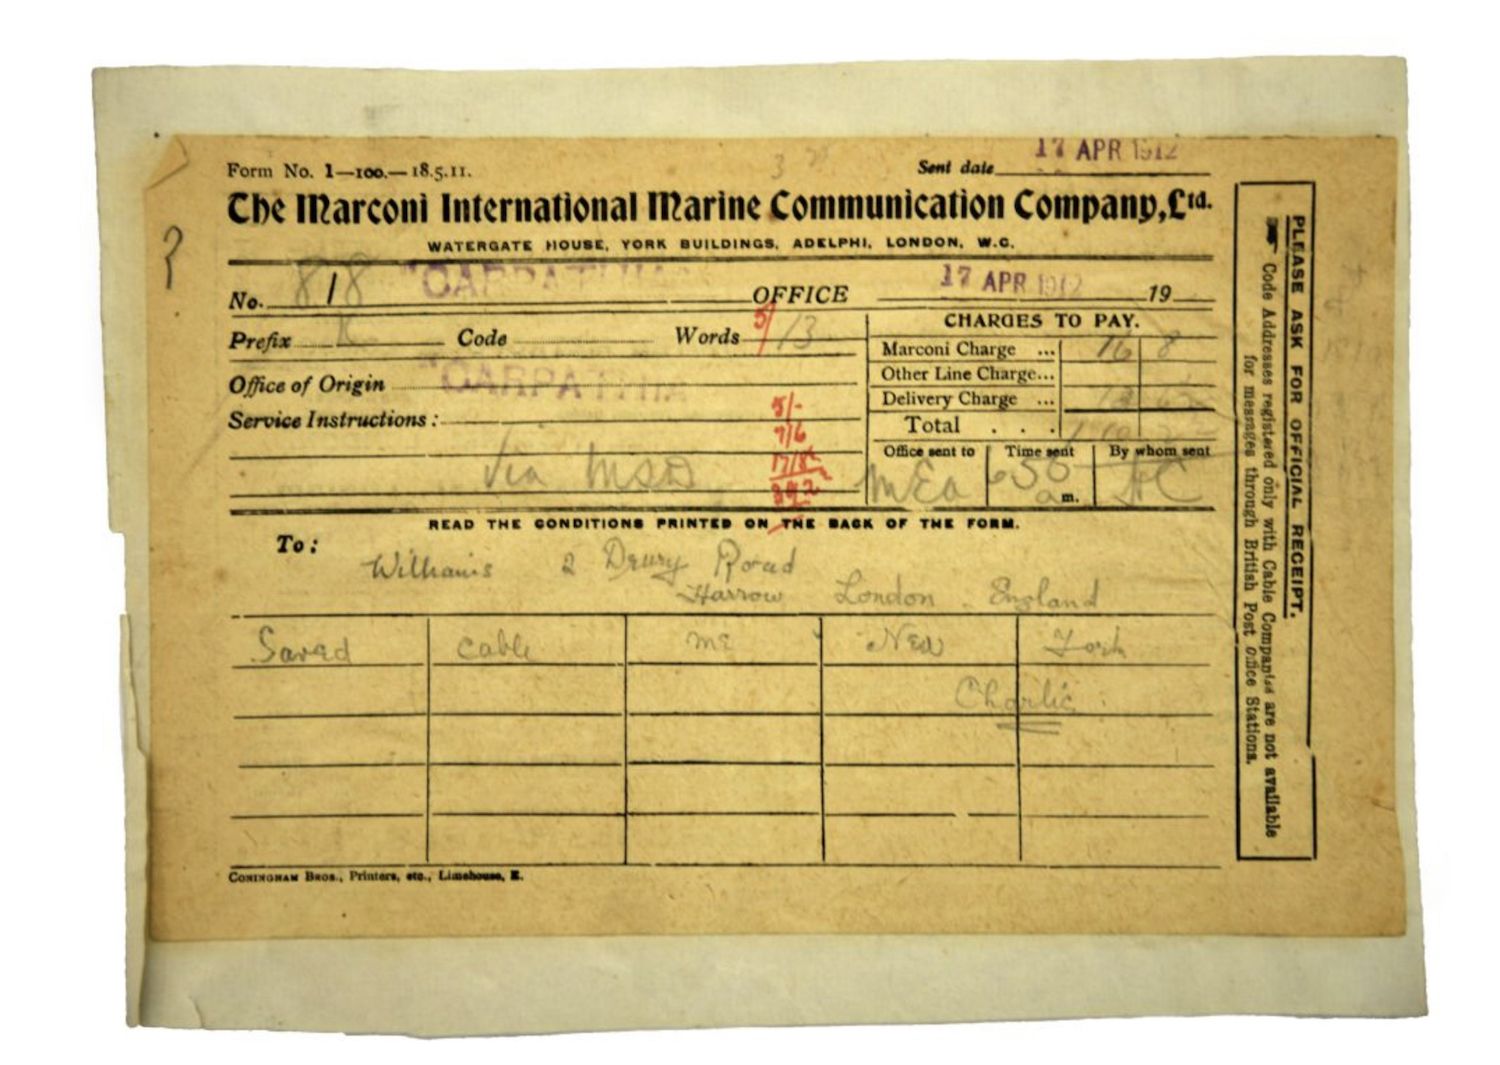 17 APR 1912
Form No. 1—100.—18.5.11. Sent date
The Marconi International Marine Communication Company, Ltd.
WATERGATE HOUSE, YORK BUILDINGS, ADELPHI, LONDON, W.C.
No. 1 "CARPATHIA OFFICE 17 APR 1912 19
Prefix Code Words 5/ 13
CHARGES TO PAY.
Marconi Charge ... 16 8
Other Line Charge...
Office of Origin "CARPATHIA
Delivery Charge ...
Service Instructions: 5/-
Total . . .
7/6
Via MSD 17/8
Office sent to Time sent By whom sent
MEA 650 am. HC
READ THE CONDITIONS PRINTED ON THE BACK OF THE FORM.
To:
Williams 2 Drury Road
Harrow London England
Saved cable me New York
Charlie
CONINGHAM BROS., Printers, etc., Limehouse, E.
PLEASE ASK FOR OFFICIAL RECEIPT.
Code Addresses registered only with Cable Companies are not available
for messages through British Post office Stations.